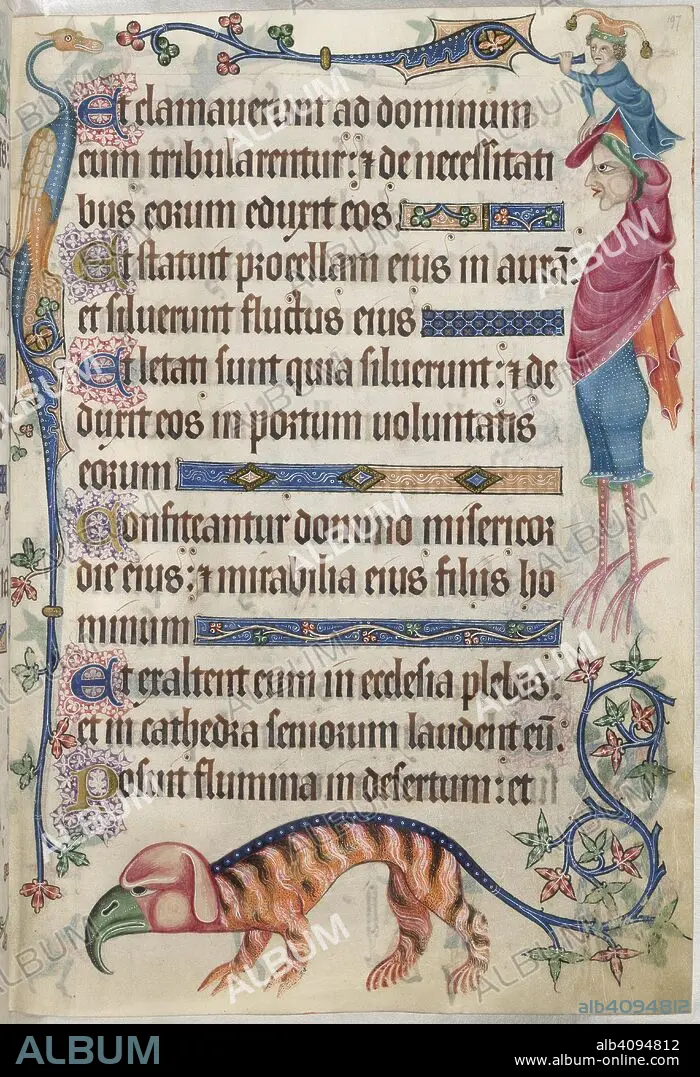 197
Et clamauerunt ad dominum
cum tribularentur: ⁊ de necessitati
bus eorum eduxit eos
Et statuit procellam eius in aurā:
et siluerunt fluctus eius
Et letati sunt quia siluerunt: ⁊ de
duxit eos in portum uoluntatis
eorum
Confiteantur domino misericor
die eius: ⁊ mirabilia eius filiis ho
minum
Et exaltent eum in ecclesia plebis:
et in cathedra seniorum laudent eū:
Posuit flumina in desertum: et
alb4094812
ALBUM
alb4094812
www.album-online.com